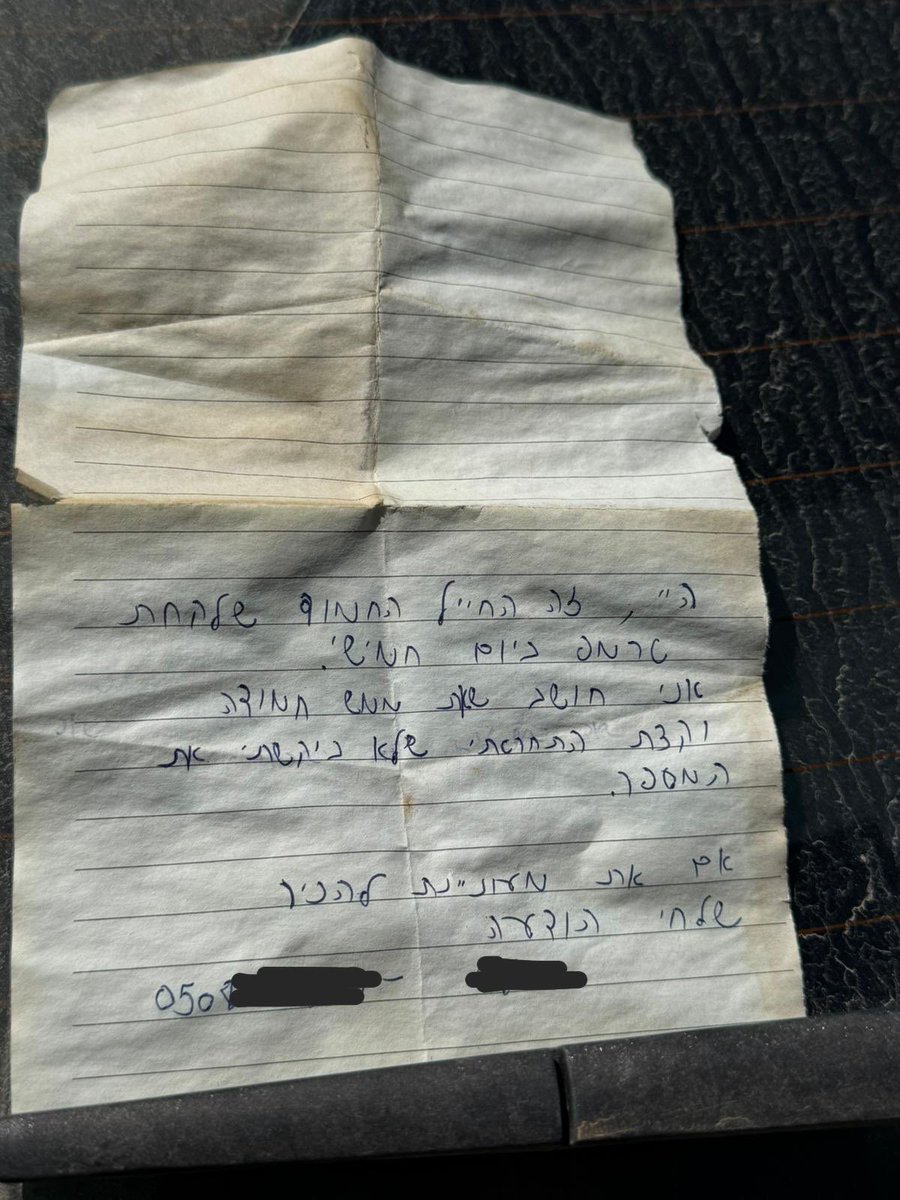 היי, זה החייל החמוד שלקחת
טרמפ ביום חמישי.
אני חושב שאת ממש חמודה
וקצת התחרטתי שלא ביקשתי את
המספר.
אם את מעוניינת להכיר
שלחי הודעה
- 050